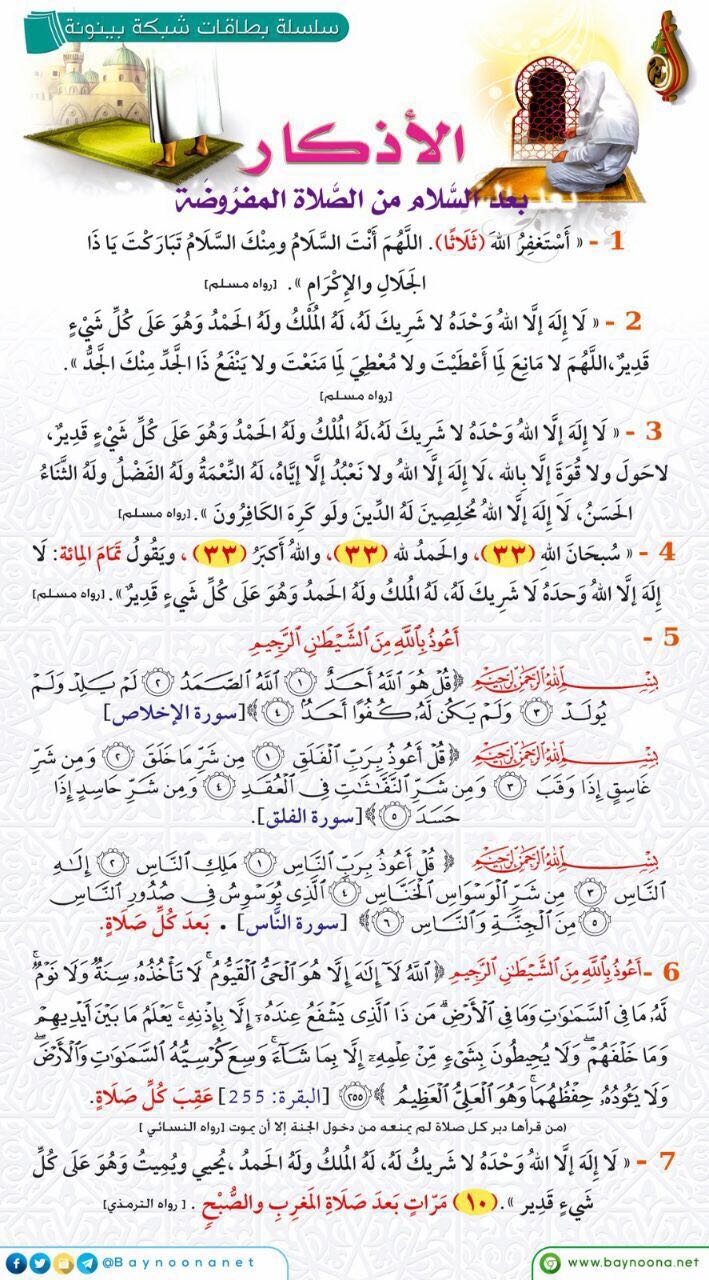 سلسلة بطاقات شبكة بينونة
الأذكار
بعد السَّلام من الصَّلاة المفرُوضَة
1 - « أَسْتَغفِرُ اللهَ (ثَلَاثًا). اللَّهُمَّ أَنْتَ السَّلَامُ ومِنْكَ السَّلَامُ تَبَارَكْتَ يَا ذَا
الجَلَالِ والإِكْرَامِ ». [رواه مسلم]
2 - « لَا إِلَهَ إِلَّا اللهُ وَحْدَهُ لا شَرِيكَ لَهُ، لَهُ المُلْكُ ولَهُ الحَمْدُ وَهُوَ عَلَى كُلِّ شَيْءٍ
قَدِيرٌ،اللَّهُمَّ لا مَانِعَ لِمَا أَعْطَيْتَ ولا مُعْطِيَ لِمَا مَنَعْتَ ولا يَنْفَعُ ذَا الجَدِّ مِنْكَ الجَدُّ ».
[رواه مسلم]
3 - « لَا إِلَهَ إِلَّا اللهُ وَحْدَهُ لا شَرِيكَ لَهُ،لَهُ المُلْكُ ولَهُ الحَمْدُ وَهُوَ عَلَى كُلِّ شَيْءٍ قَدِيرٌ،
لاحَولَ ولا قُوَةَ إِلَّا بِالله ،لَا إِلَهَ إِلَّا اللهُ ولا نَعْبُدُ إِلَّا إِيَّاهُ، لَهُ النِّعْمَةُ ولَهُ الفَضْلُ ولَهُ الثَّنَاءُ
الحَسَنُ، لَا إِلَهَ إِلَّا اللهُ مُخلِصِينَ لَهُ الدِّينَ ولَو كَرِهَ الكَافِرُونَ ». [رواه مسلم]
4 - « سُبحَانَ اللهِ (٣٣)، والحَمدُ لله (٣٣)، واللهُ أَكبَرُ (٣٣) ، ويَقُولُ تَمَامَ المِائة: لَا
إِلَهَ إِلَّا اللهُ وَحدَهُ لَا شَرِيكَ لَهُ، لَهُ المُلكُ ولَهُ الحَمدُ وَهُوَ عَلَى كُلِّ شَيءٍ قَدِيرٌ». [رواه مسلم]
5 - أَعُوذُ بِٱللَّهِ مِنَ ٱلشَّيْطَٰنِ ٱلرَّجِيمِ
بِسْمِ ٱللَّهِ ٱلرَّحْمَٰنِ ٱلرَّحِيمِ ﴿قُلْ هُوَ ٱللَّهُ أَحَدٌ ١ ٱللَّهُ ٱلصَّمَدُ ٢ لَمْ يَلِدْ وَلَمْ
يُولَدْ ٣ وَلَمْ يَكُن لَّهُۥ كُفُوًا أَحَدٌۢ ٤ ﴾[سورة الإخلاص]
بِسْمِ ٱللَّهِ ٱلرَّحْمَٰنِ ٱلرَّحِيمِ ﴿قُلْ أَعُوذُ بِرَبِّ ٱلْفَلَقِ ١ مِن شَرِّ مَا خَلَقَ ٢ وَمِن شَرِّ
غَاسِقٍ إِذَا وَقَبَ ٣ وَمِن شَرِّ ٱلنَّفَّٰثَٰتِ فِى ٱلْعُقَدِ ٤ وَمِن شَرِّ حَاسِدٍ إِذَا
حَسَدَ ٥ ﴾[سورة الفلق].
بِسْمِ ٱللَّهِ ٱلرَّحْمَٰنِ ٱلرَّحِيمِ ﴿ قُلْ أَعُوذُ بِرَبِّ ٱلنَّاسِ ١ مَلِكِ ٱلنَّاسِ ٢ إِلَٰهِ
ٱلنَّاسِ ٣ مِن شَرِّ ٱلْوَسْوَاسِ ٱلْخَنَّاسِ ٤ ٱلَّذِى يُوَسْوِسُ فِى صُدُورِ ٱلنَّاسِ
٥ مِنَ ٱلْجِنَّةِ وَٱلنَّاسِ ٦ ﴾ [سورة النَّاس] . بَعدَ كُلِّ صَلَاةٍ.
6 - أَعُوذُ بِٱللَّهِ مِنَ ٱلشَّيْطَٰنِ ٱلرَّجِيمِ ﴿ ٱللَّهُ لَآ إِلَٰهَ إِلَّا هُوَ ٱلْحَىُّ ٱلْقَيُّومُ ۚ لَا تَأْخُذُهُۥ سِنَةٌ وَلَا نَوْمٌ ۚ
لَّهُۥ مَا فِى ٱلسَّمَٰوَٰتِ وَمَا فِى ٱلْأَرْضِ ۗ مَن ذَا ٱلَّذِى يَشْفَعُ عِندَهُۥٓ إِلَّا بِإِذْنِهِۦ ۚ يَعْلَمُ مَا بَيْنَ أَيْدِيهِمْ
وَمَا خَلْفَهُمْ ۖ وَلَا يُحِيطُونَ بِشَىْءٍ مِّنْ عِلْمِهِۦٓ إِلَّا بِمَا شَآءَ ۚ وَسِعَ كُرْسِيُّهُ ٱلسَّمَٰوَٰتِ وَٱلْأَرْضَ ۖ
وَلَا يَـُٔودُهُۥ حِفْظُهُمَا ۚ وَهُوَ ٱلْعَلِىُّ ٱلْعَظِيمُ ٢٥٥ ﴾ [البقرة: 255] عَقِبَ كُلِّ صَلَاةٍ.
(من قرأها دبر كل صلاة لم يمنعه من دخول الجنة إلا أن يموت [رواه النسائي])
7 - « لَا إِلَهَ إِلَّا اللهُ وَحْدَهُ لا شَرِيكَ لَهُ، لَهُ المُلكُ ولَهُ الحَمدُ ،يُحيي ويُمِيتُ وَهُوَ عَلَى كُلِّ
شَيءٍ قَدِير ».(١٠) مَرّاتٍ بَعدَ صَلَاةِ المَغرِبِ والصُّبْحِ . [رواه الترمذي]
@Baynoonanet
www.baynoona.net